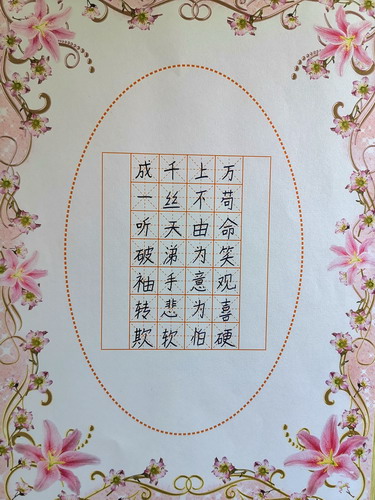 成千上万
一丝不苟
听天由命
破涕为笑
袖手意观
转悲为喜
欺软怕硬